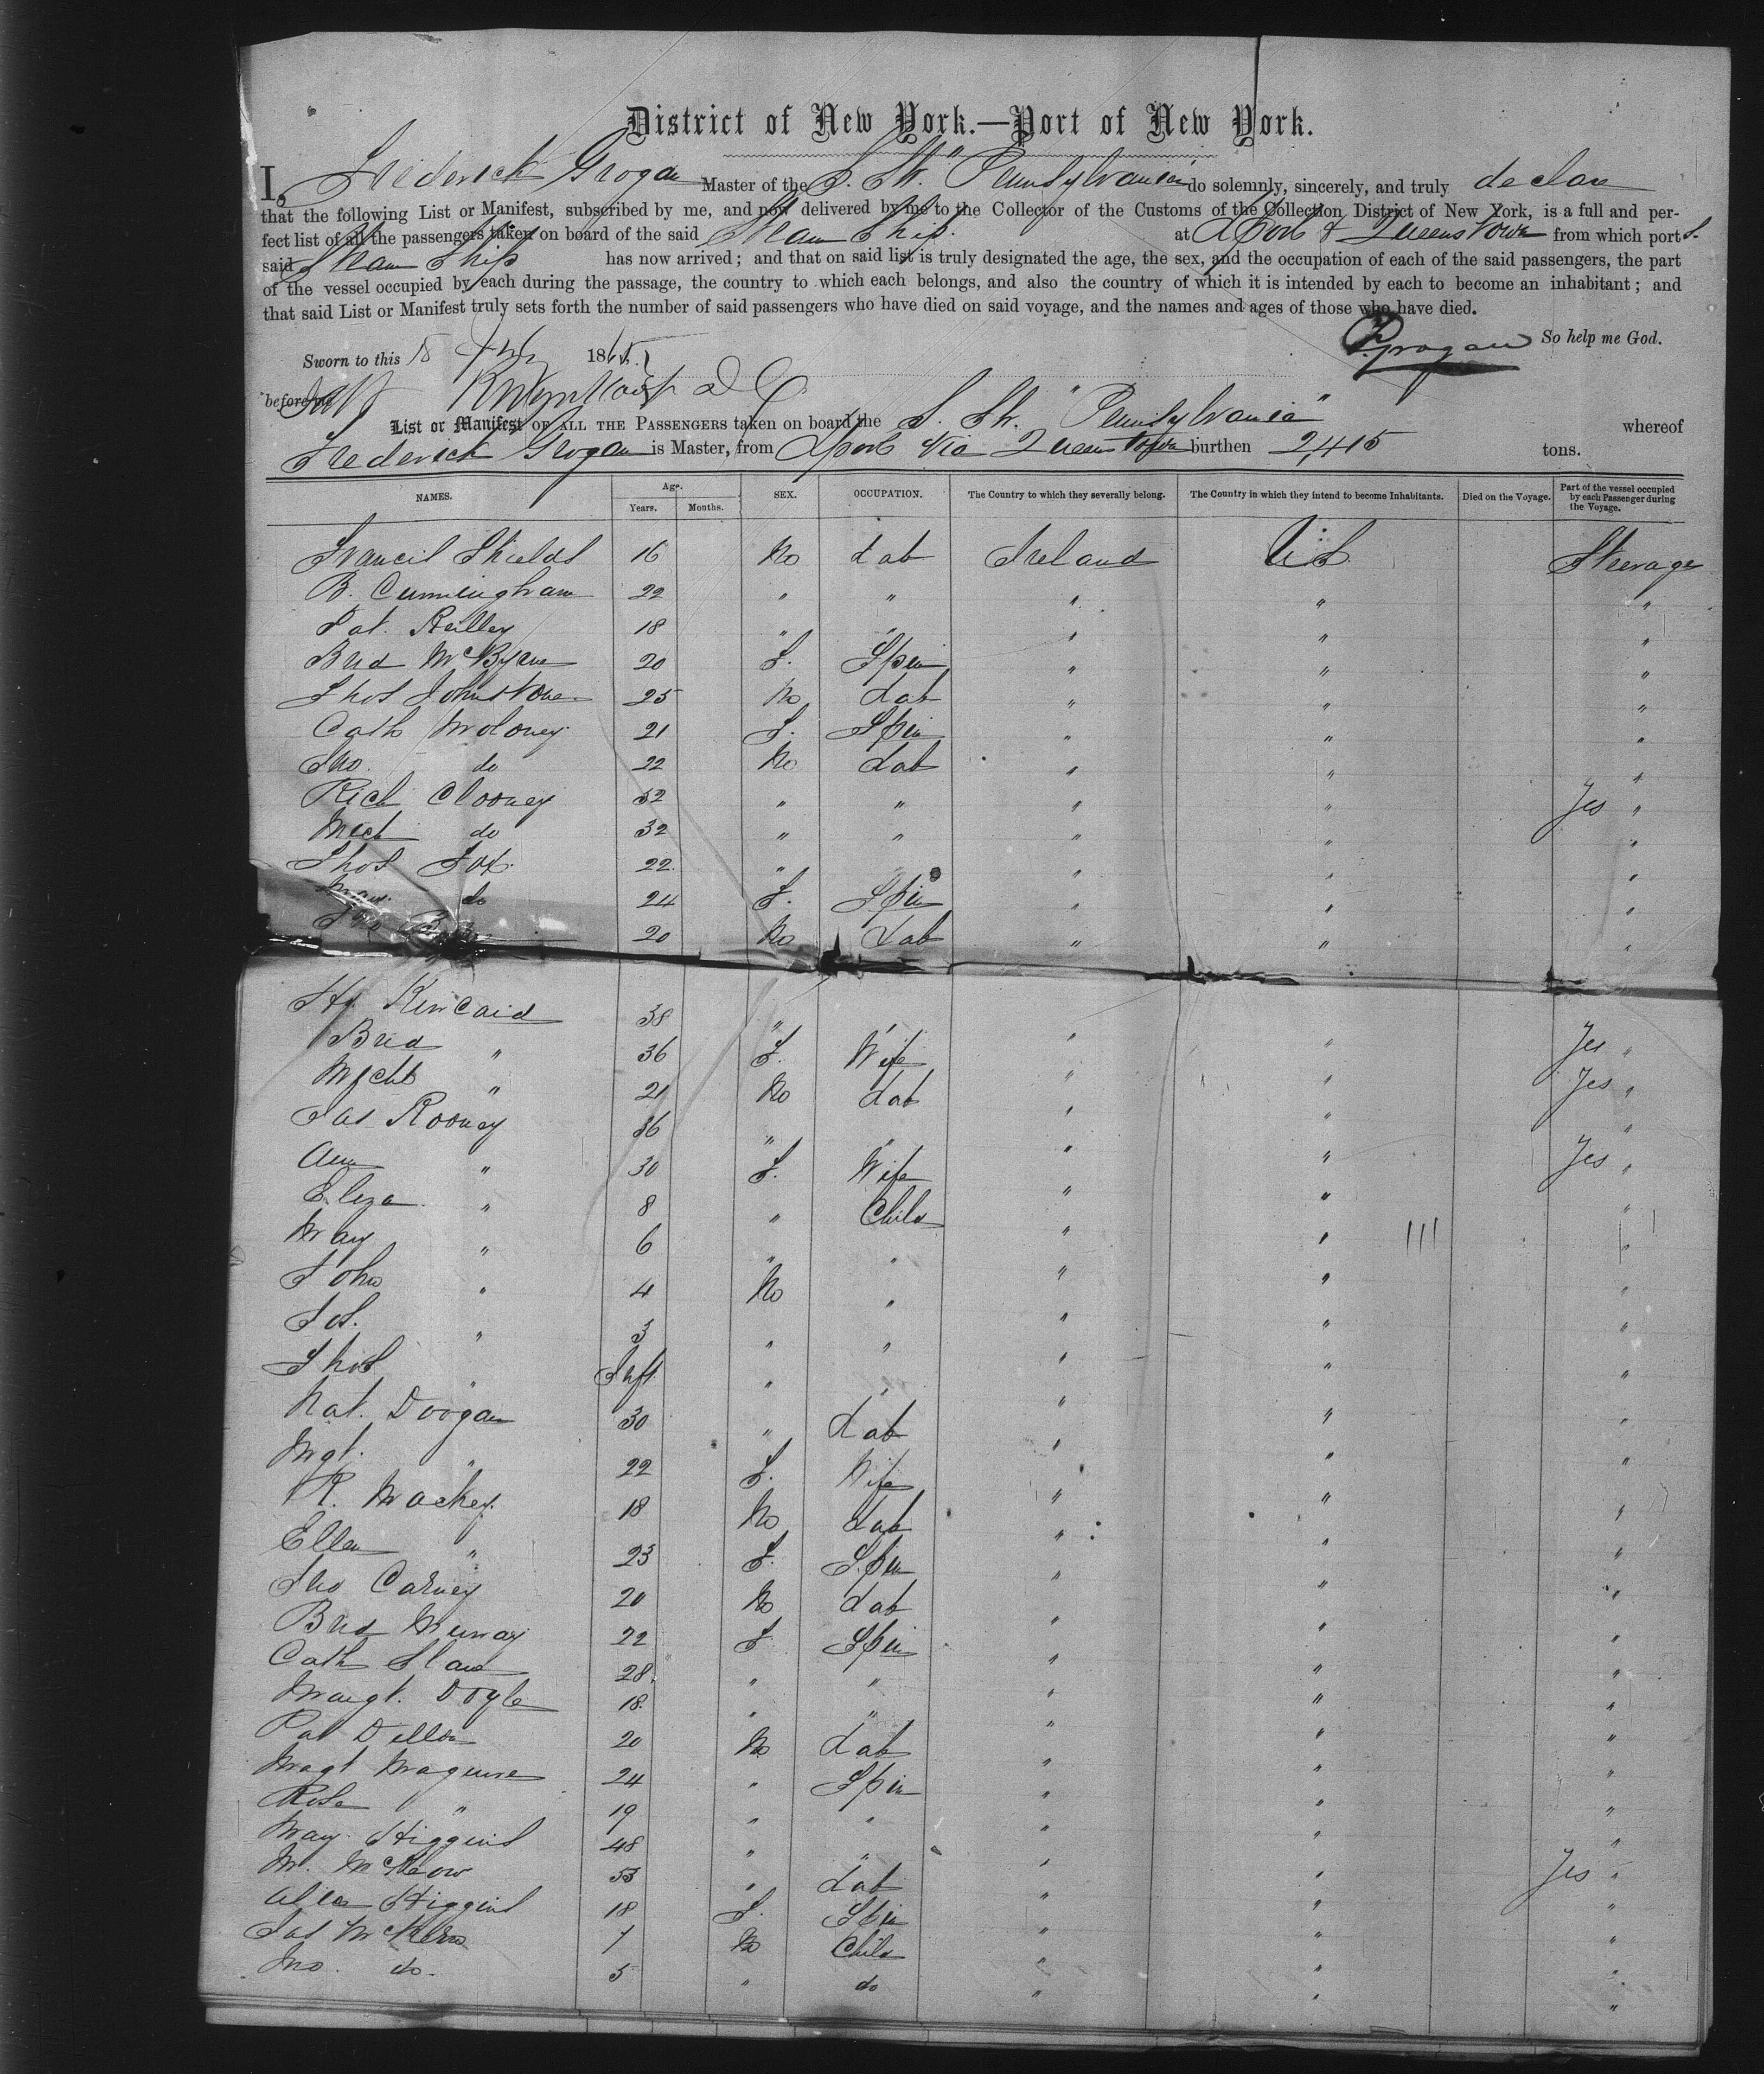 District of New York.—Port of New York.
I, Frederick Grogan Master of the S. Str. "Pennsylvania" do solemnly, sincerely, and truly declare
that the following List or Manifest, subscribed by me, and now delivered by me to the Collector of the Customs of the Collection District of New York, is a full and per-
fect list of all the passengers taken on board of the said Steam Ship at Lpool & Queenstown from which ports
said Steam Ship has now arrived; and that on said list is truly designated the age, the sex, and the occupation of each of the said passengers, the part
of the vessel occupied by each during the passage, the country to which each belongs, and also the country of which it is intended by each to become an inhabitant; and
that said List or Manifest truly sets forth the number of said passengers who have died on said voyage, and the names and ages of those who have died.
F. Grogan So help me God.
Sworn to this 1865
before me
List or Manifest OF ALL THE PASSENGERS taken on board the S. Str. "Pennsylvania" whereof
Frederick Grogan is Master, from Lpool via Queenstown burthen 2,415 tons.
NAMES. Age. Years. Months. SEX. OCCUPATION. The Country to which they severally belong. The Country in which they intend to become Inhabitants. Died on the Voyage. Part of the vessel occupied by each Passenger during the Voyage.
Francis Shields 16 M Lab Ireland U.S. Steerage
B. Cunningham 22 " " " " "
Pat. Reilley 18 " " " " "
Brid McByrne 20 F. Spin " " "
Thos Johnstone 25 M Lab " " "
Cath Moloney 21 F. Spin " " "
Jno. do 22 M Lab " " "
Rich Clooney 32 " " " " Yes "
Mich do 32 " " " " "
Thos Fox 22 " " " " "
Mary do 24 F. Spin " " "
Jno 20 M Lab " " "
Hy. Kincaid 38 " " " " Yes "
Brid " 36 F. Wife " " Yes "
Michl " 21 M Lab " " "
Jas Rooney 36 " " " " Yes "
Ann " 30 F. Wife " " "
Eliza " 8 " Child " " "
Mary " 6 " " " " "
John " 4 M " " " "
Jos. " 3 " " " " "
Thos " Inft " " " " "
Nat. Doogan 30 " Lab " " "
Mgt. " 22 F. Wife " " "
R. Mackey 18 M Lab " " "
Ellen " 23 F. Spin " " "
Jno Carney 20 M Lab " " "
Brid Murray 22 F Spin " " "
Cath Slane 28 " " " " "
Margt. Doyle 18 " " " " "
Pat Dillon 20 M Lab " " "
Magt Maguire 24 " Spin " " "
Rose " 19 " " " " "
Mary Higgins 48 " " " " Yes "
M. McKeow 53 " Lab " " "
Alice Higgins 18 F. Spin " " "
Jas McKeow 7 M Child " " "
Jno. do. 5 " do " " "